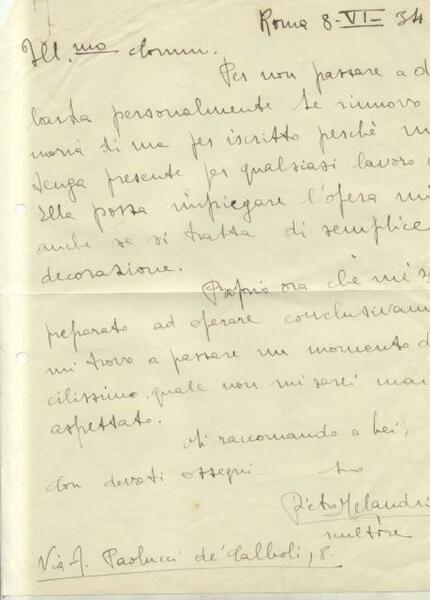 Roma 8-VI-34
Ill.mo Comm.
Per non passare a d
barla personalmente Le rinnovo
moria di ma per iscritto perchè m
tenga presente per qualsiasi lavoro
Ella possa impiegare l'opera mi
anche se si tratta di semplice
decorazione.
Proprio ora che mi s
preparato ad operare conclusivam
mi trovo a passare un momento d
cilissimo quale non mi sarei mai
aspettato.
Mi raccomando a Lei,
Con devoti ossequi. Suo
Pietro Melandri
scultore
Via A. Paolucci de' Calboli, 8.